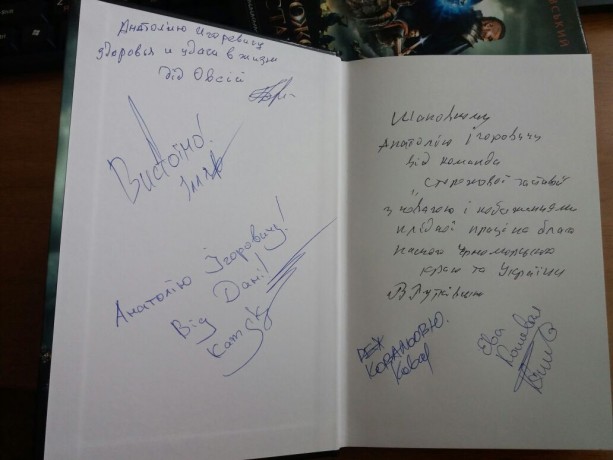 Анатолію Игоревичу
здоровья и удача в жизни
дід Овсій
Вистоїмо!
Ілля
Анатолію Ігоровичу!
Від Дані!
Kamsk
Шановному
Анатолію Ігоровичу
від команда
„Сторожової застави
з повагою і побажаннями
плідної праці на благо
нашого Чорноморського
краю та України
КОВАЛЬОВЮ.
Єва